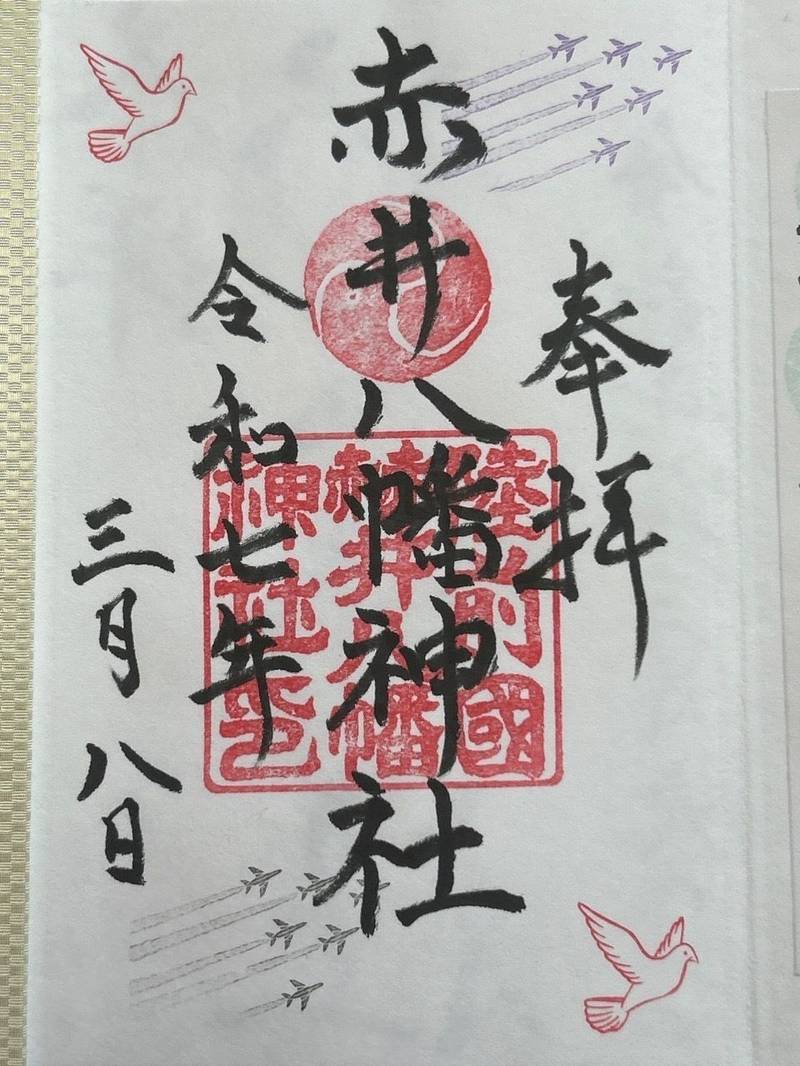 奉拝
赤井八幡神社
令和七年
三月八日
陸前國
赤井八幡
神社印